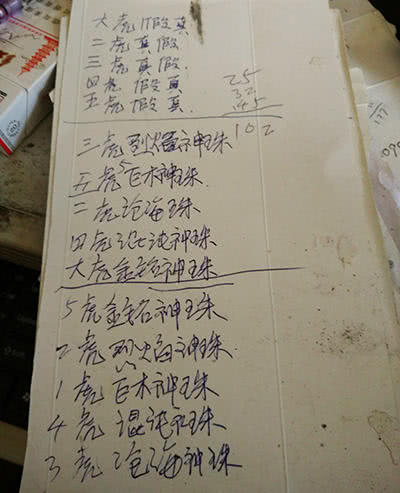 大虎 假真
二虎 真假
三虎 真假
四虎 假真
五虎 假真
25
32
45
102
三虎 烈焰神珠
五虎 巨木神珠
二虎 沧海珠
四虎 混沌神珠
大虎 金铭神珠
5虎 金铭神珠
2虎 烈焰神珠
1虎 巨木神珠
4虎 混沌神珠
3虎 沧海神珠